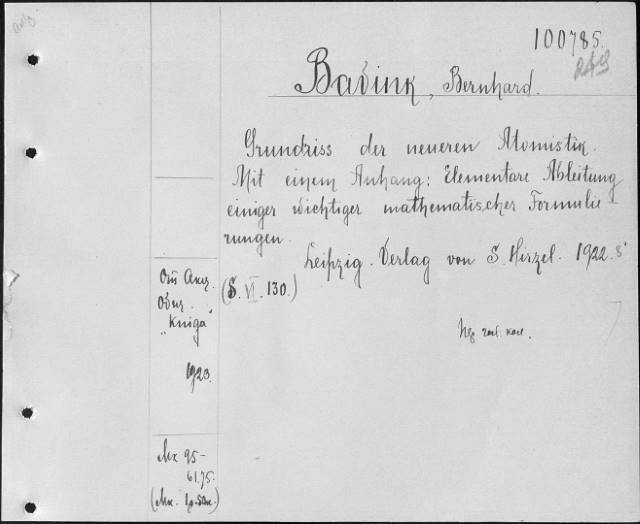 100785.
Bavink, Bernhard.
Grundriss der neueren Atomistik.
Mit einem Anhang: Elementare Ableitung
einiger wichtiger mathematischer Formulie-
rungen.
Leipzig. Verlag von S. Hirzel. 1922. 8°
(S. VI. 130.)
От Акц.
Общ.
„Kniga”
1923.